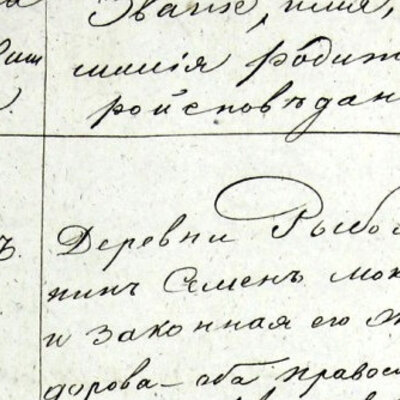 Званіе, имя,
милія родит
роисповѣдан
Деревни Рыбо
нинъ Семенъ Мок
и законная его
дорова - оба правос